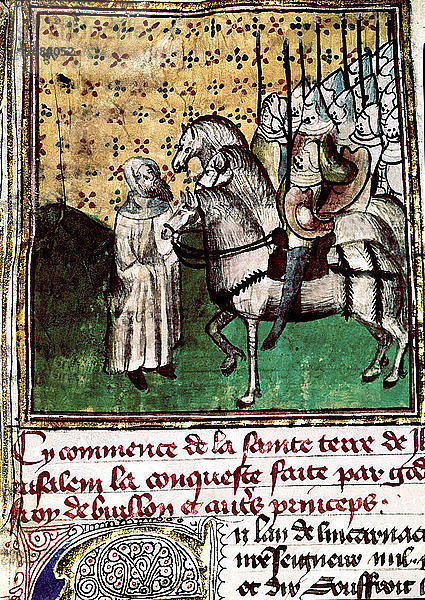 Cy commence de la sainte terre de
rusalem la conqueste faite par god
froy de buillon et autrs princeps.
n lan de lincarnac
nre seigneur mil.
et dix